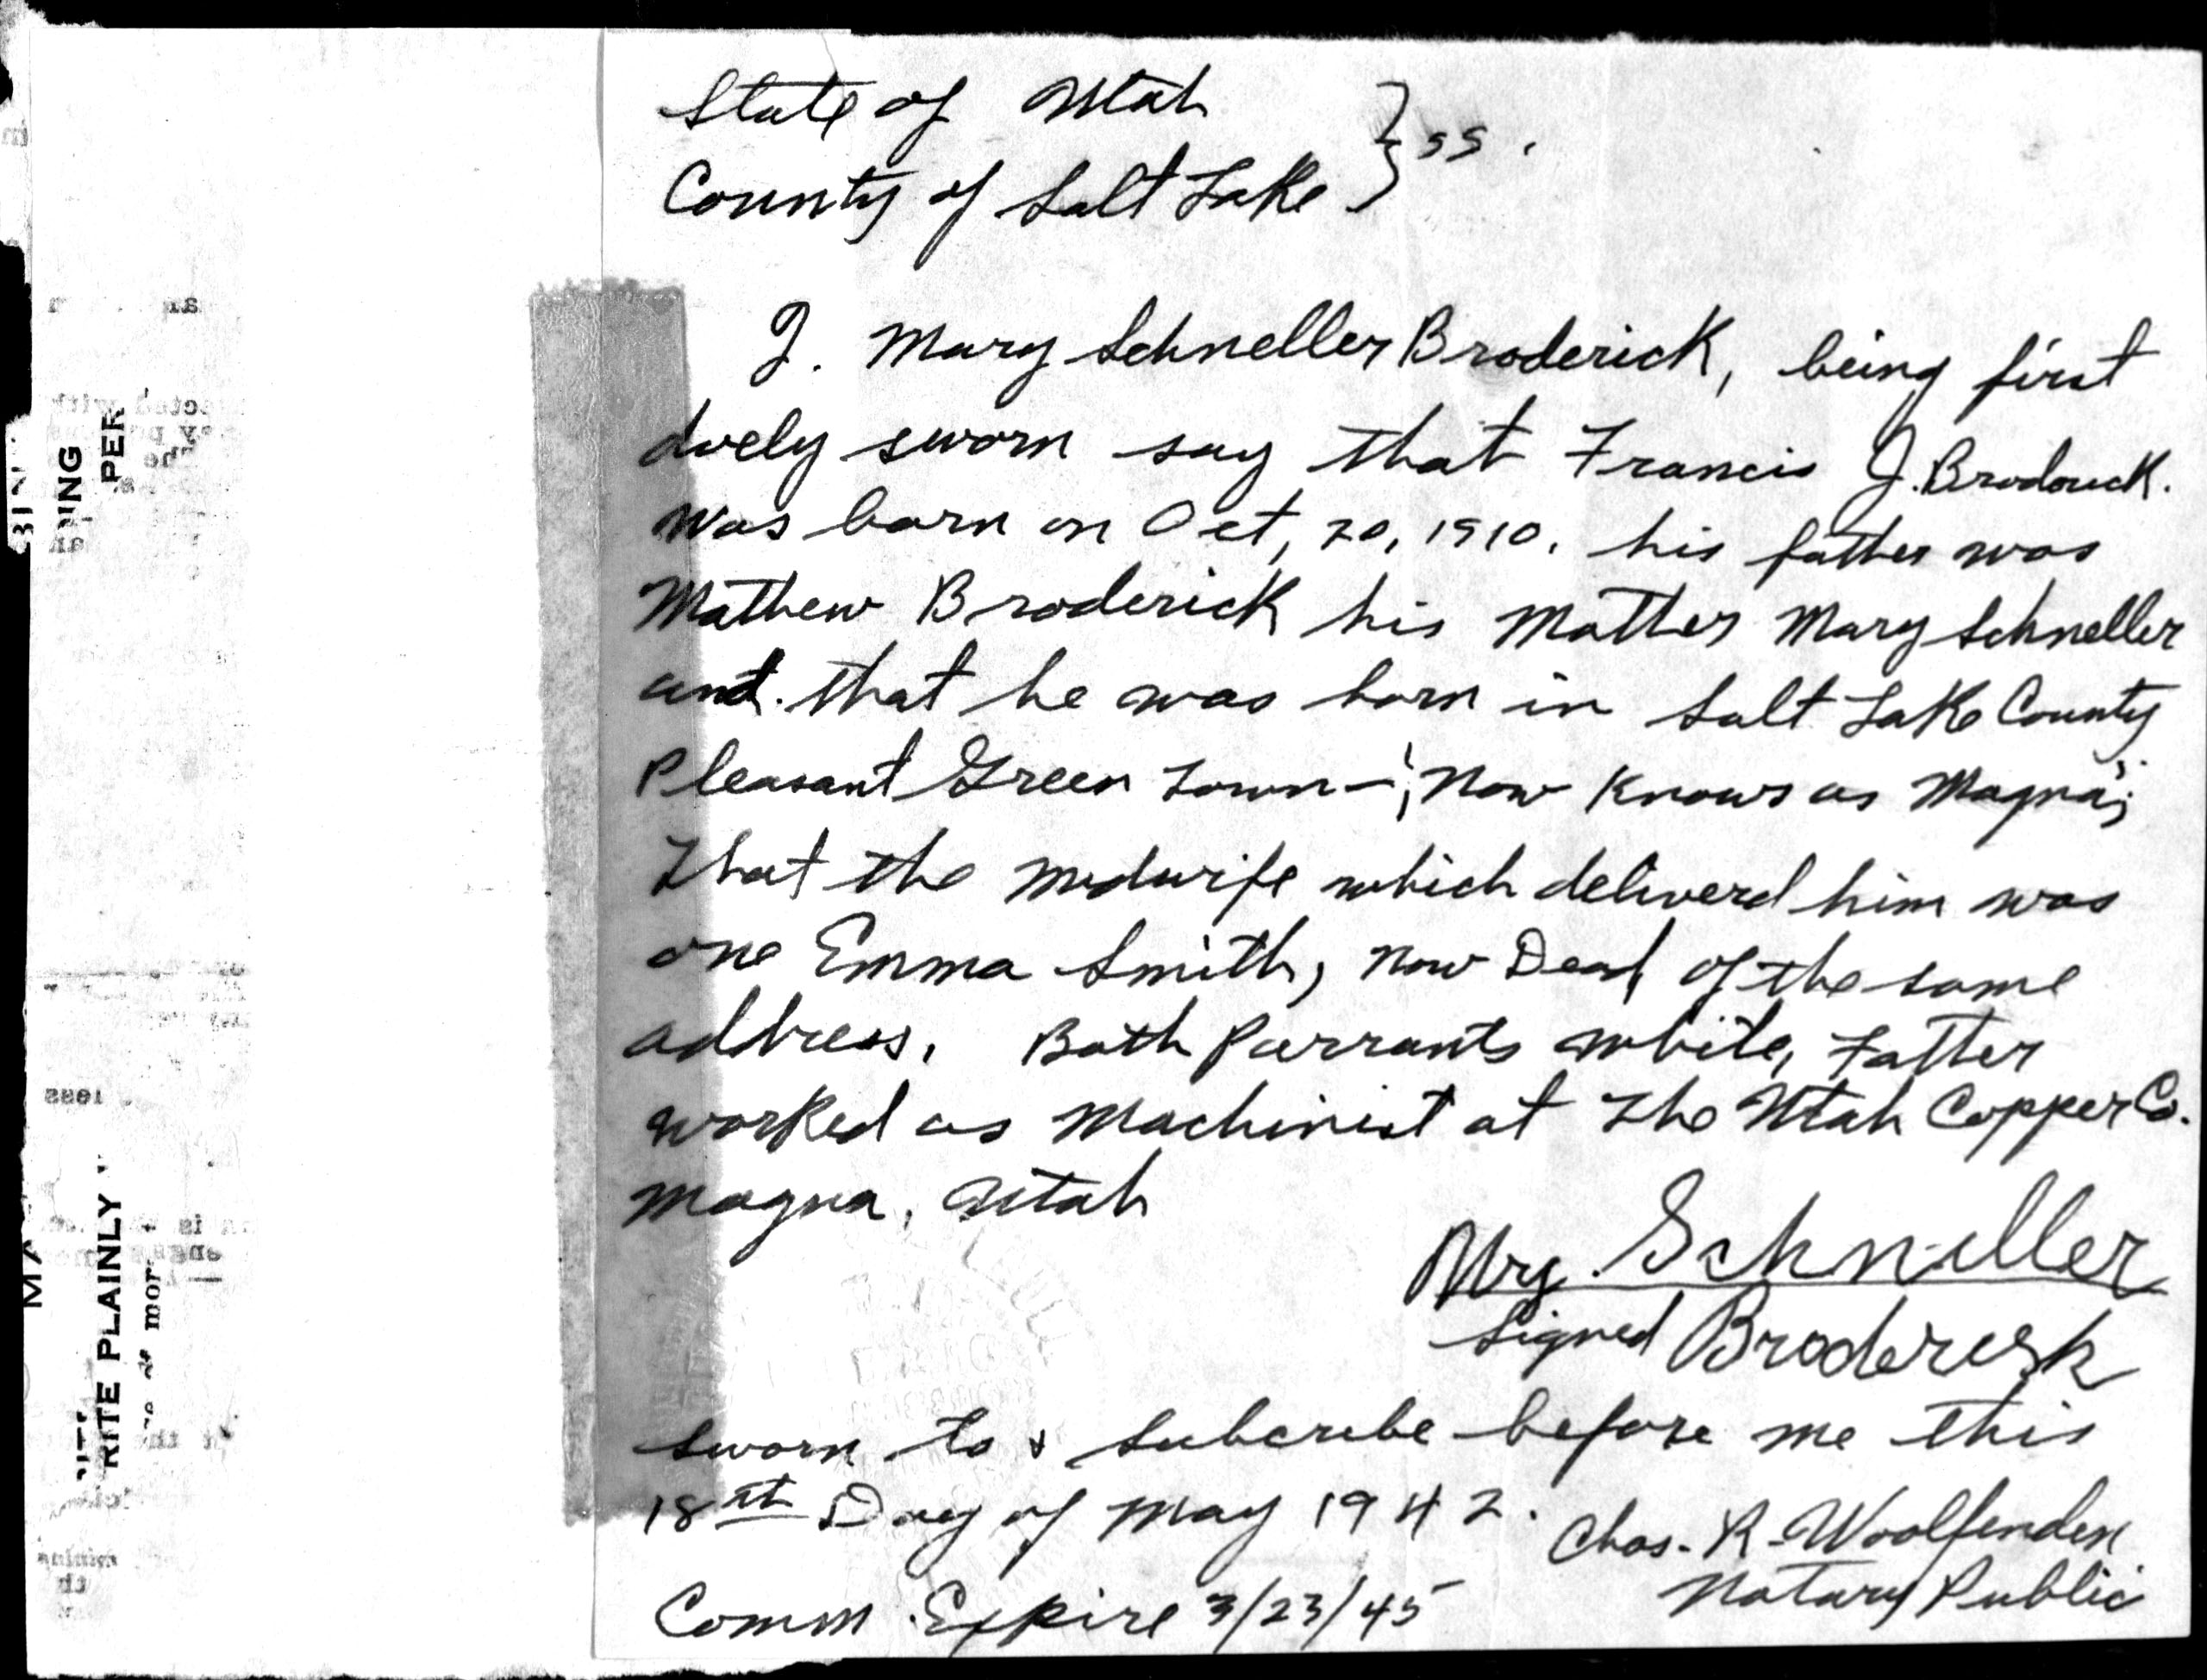 State of Utah
County of Salt Lake } ss.
I. Mary Schneller Broderick, being first
duely sworn say that Francis J. Broderick.
was born on Oct, 20, 1910. his father was
Mathew Broderick his Mother Mary Schneller
and. that he was born in Salt Lake County
Pleasant Green Town-; Now Known as Magna;
That the midwife which deliverd him was
one Emma Smith, Now Dead of the same
address. Both Parrants white, Father
worked as Machinist at The Utah Copper Co.
Magna, Utah
Mry. Schneller
Signed Broderick
Sworn to & Subcribe before me this
18st Day of May 1942.
Chas. R. Woolfenden
Notary Public
Comm. Expire 3/23/45
NG
PER
RITE PLAINLY